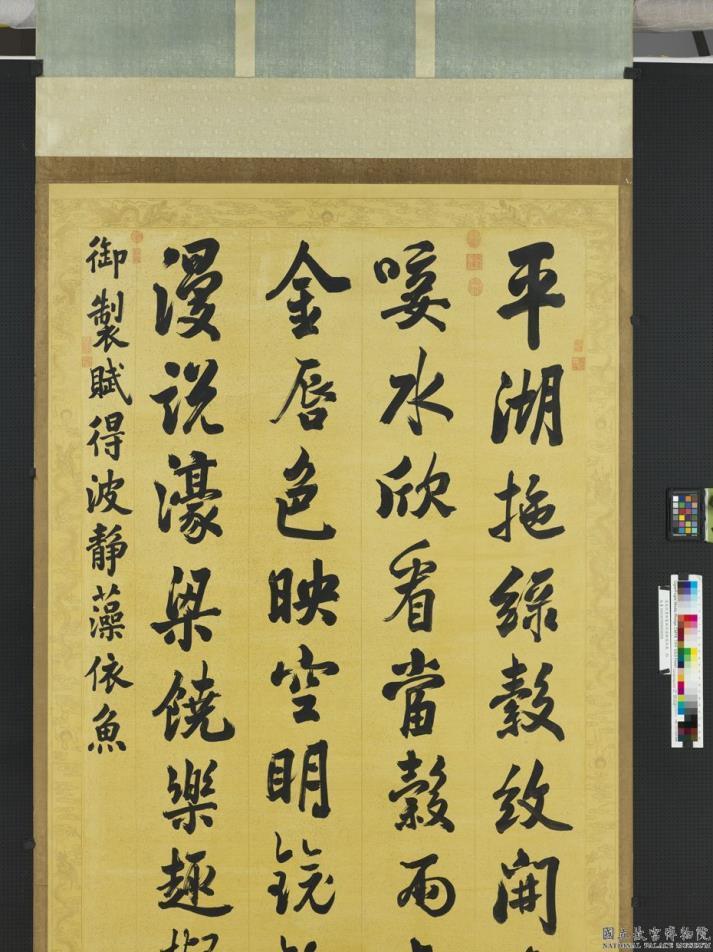 平湖拖綠縠紋開
唼水欣看當穀雨
金唇色映空明鏡
漫說濠梁饒樂趣
御製賦得波靜藻依魚
國立故宮博物院
NATIONAL PALACE MUSEUM